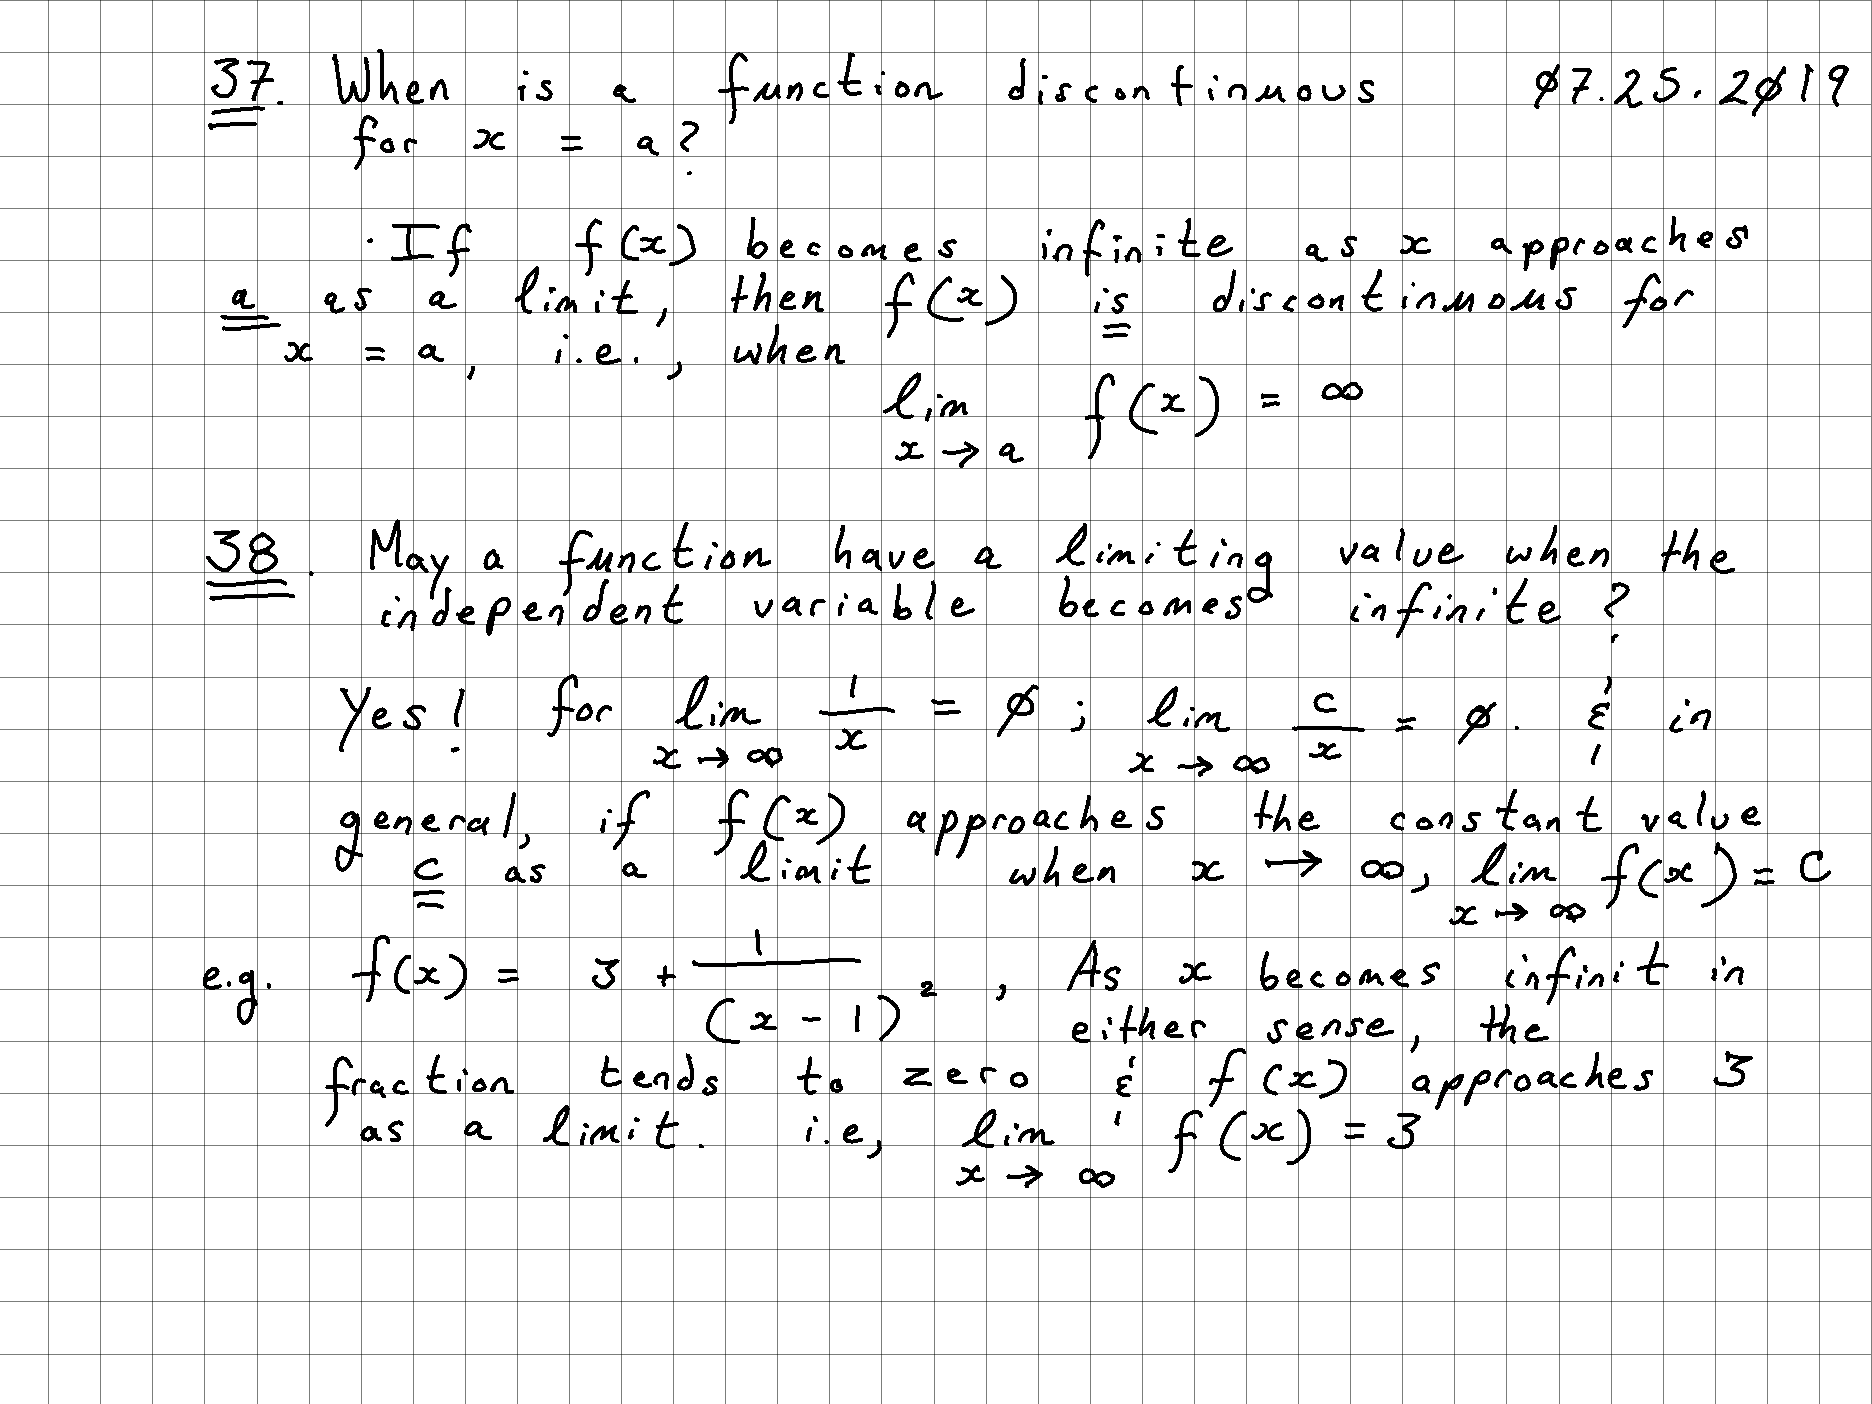 37. When is a function discontinuous ø7.25.2ø19
for x = a?
· If f(x) becomes infinite as x approaches
a as a limit, then f(x) is discontinuous for
x = a, i.e., when
lim f(x) = ∞
x → a
38. May a function have a limiting value when the
independent variable becomes infinite?
Yes! for lim 1/x = ø; lim c/x = ø. & in
x → ∞ x → ∞
general, if f(x) approaches the constant value
c as a limit when x → ∞, lim f(x) = C
x → ∞
e.g. f(x) = 3 + 1/(x - 1)², As x becomes infinit in
either sense, the
fraction tends to zero & f(x) approaches 3
as a limit. i.e, lim f(x) = 3
x → ∞